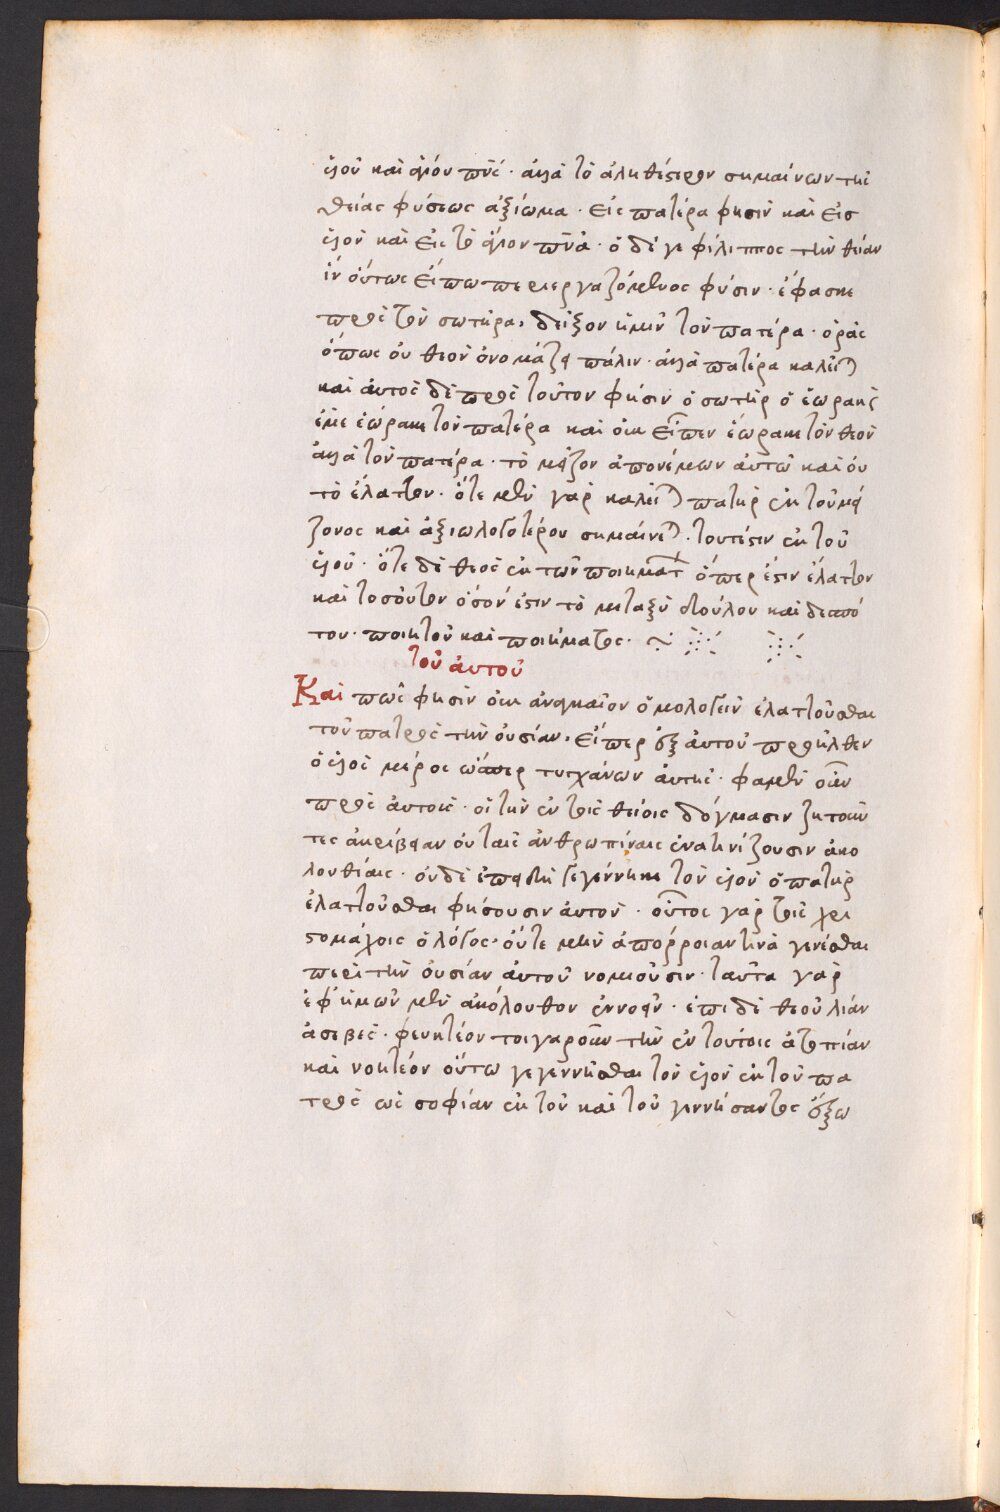 υἱοῦ καὶ ἅγιον πνς · ἀλλὰ τὸ ἀληθέστερον σημαίνων τῆς
θείας φύσεως ἀξίωμα · εἰς πατέρα φησὶν καὶ εἰς
υἱὸν καὶ εἰς τὸ ἅγιον πνα · ὁ δέ γε φίλιππος τὴν θείαν
ἵν οὕτως εἴπω περιεργαζόμενος φύσιν · ἔφασκε
πρὸς τὸν σωτῆρα, δεῖξον ἡμῖν τὸν πατέρα · ὁρᾶς
ὅπως οὐ θεὸν ὀνομάζει πάλιν · ἀλλὰ πατέρα καλεῖ
καὶ αὐτὸς δὲ πρὸς τοῦτον φησὶν ὁ σωτὴρ ὁ ἑωρακὼς
ἐμὲ ἑώρακε τὸν πατέρα καὶ οὐκ εἶπεν ἑώρακε τὸν θεὸν
ἀλλὰ τὸν πατέρα · τὸ μεῖζον ἀπονέμων αὐτῶ καὶ οὐ
τὸ ἔλαττον · ὅτε μὲν γὰρ καλεῖται πατὴρ ἐκ τοῦ μεί
ζονος καὶ ἀξιωλογοτέρου σημαίνεται · τουτέστιν ἐκ τοῦ
υἱοῦ · ὅτε δὲ θεὸς ἐκ τῶν ποιημάτ ὅπερ ἐστιν ἔλαττον
καὶ τοσοῦτον ὅσον ἐστιν τὸ μεταξὺ δούλου καὶ δεσπό
του · ποιητοῦ καὶ ποιήματος ·
τοῦ αὐτοῦ
Καὶ πῶς φησὶν οὐκ ἀναγκαῖον ὁμολογεῖν ἐλαττοῦσθαι
τοῦ πατρὸς τὴν οὐσίαν, εἴπερ ἐξ αὐτοῦ προῆλθεν
ὁ υἱὸς μέρος ὥσπερ τυγχάνων αὐτῆς · φαμὲν οὖν
πρὸς αὐτοὺς · οἱ τὴν ἐν τοῖς θείοις δόγμασιν ζητοῦν
τες ἀκρίβειαν οὐ ταῖς ἀνθρωπίναις ἐνατενίζουσιν ἀκο
λουθίαις · οὐδὲ ἐπειδὴ γεγέννηκε τὸν υἱὸν ὁ πατὴρ
ἐλαττοῦσθαι φήσουσιν αὐτὸν · οὗτος γὰρ τοῖς χρι
στομάχοις ὁ λόγος · οὔτε μὴν ἀπόρροιαν τινὰ γενέσθαι
περὶ τὴν οὐσίαν αὐτοῦ νομιοῦσιν · ταῦτα γὰρ
ἐφ ἡμῶν μὲν ἀκόλουθον ἐννοεῖν · ἐπὶ δὲ θεοῦ λίαν
ἀσεβὲς · φευκτέον τοιγαροῦν τὴν ἐν τούτοις ἀτοπίαν
καὶ νοητέον οὕτω γεγεννῆσθαι τὸν υἱὸν ἐκ τοῦ πα
τρὸς ὡς σοφίαν ἐκ τοῦ καὶ τοῦ γεννήσαντος ἔξω